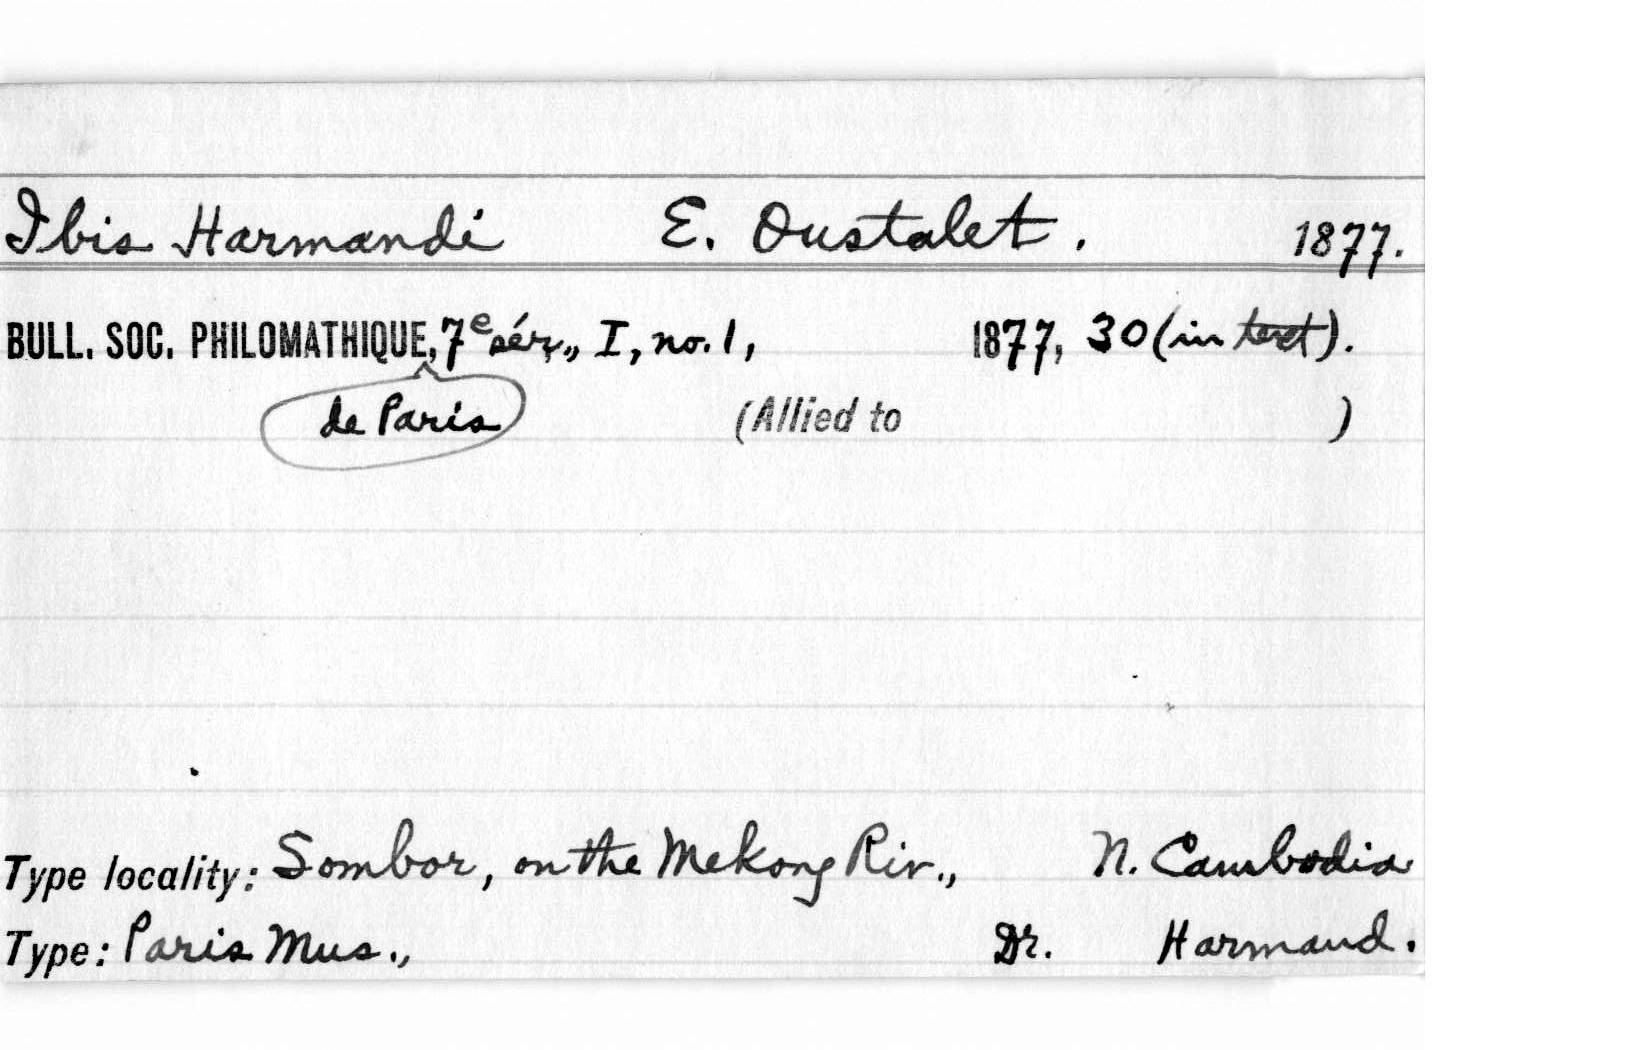 Ibis Harmandi E. Oustalet. 1877.
BULL. SOC. PHILOMATHIQUE, 7e sér., I, no. 1, 1877, 30 (in text).
de Paris (Allied to )
Type locality: Sombor, on the Mekong Riv., N. Cambodia
Type: Paris Mus., Dr. Harmand.